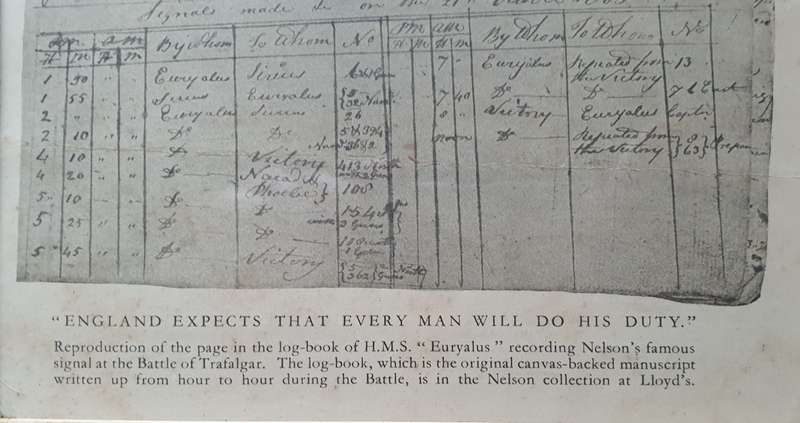 Signals made on the 21st
pm am By Whom To Whom No pm am By Whom To Whom No
H M H M H M H M
1 30 " " Euryalus Sirius 7 " Euryalus Repeated from 13
the Victory
1 55 " " Sirius Euryalus 7 40 Do Do
2 " " " Euryalus Sirius 26 8 " Victory Euryalus
2 10 " " Do Do noon Do Repeated from
the Victory 63
4 10 " " Do Victory 413
4 20 " " Do Naiad &
5 10 " " Do Phoebe 108
5 25 " " Do Do 154
2 Guns
5 45 " " Do Victory
362
"ENGLAND EXPECTS THAT EVERY MAN WILL DO HIS DUTY."
Reproduction of the page in the log-book of H.M.S. "Euryalus" recording Nelson's famous
signal at the Battle of Trafalgar. The log-book, which is the original canvas-backed manuscript
written up from hour to hour during the Battle, is in the Nelson collection at Lloyd's.